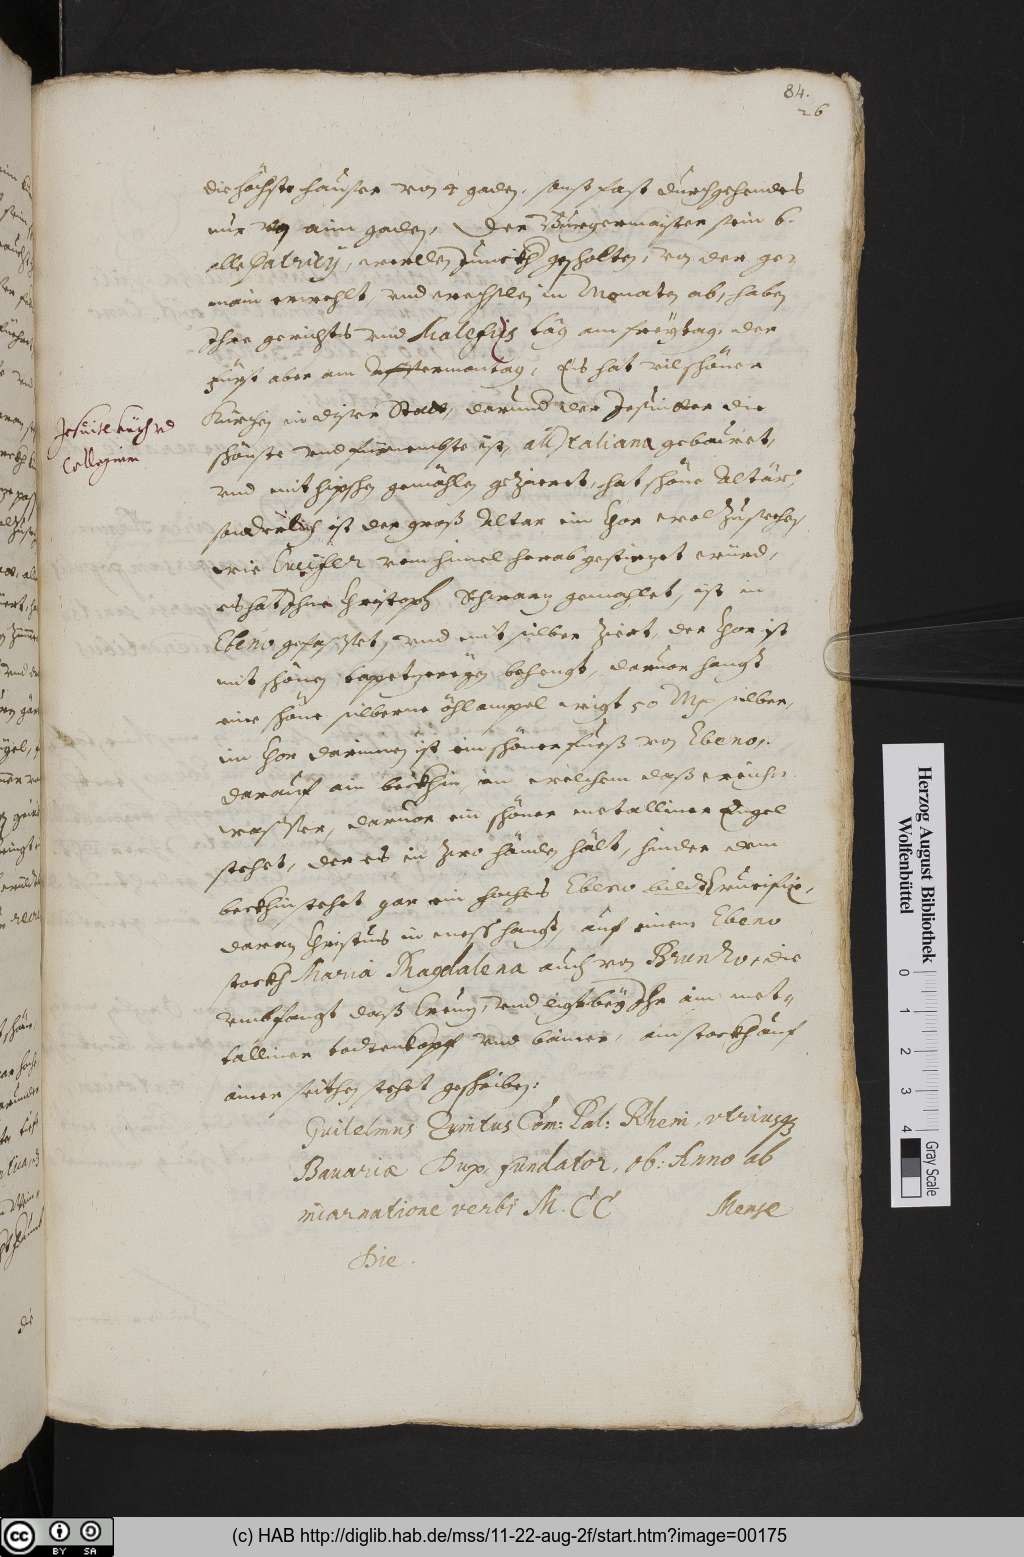 84.
26
die höchste heuser von 4 gaden, sonst fast durchgehendes
nur von aim gaden, Der Burgermaister sein 6.
alle Patricij, werden Junckh. geholten, von der ge-
main erwehlt, vnd wechslen in Monaten ab, haben
Ihre gerichts vnd Malefiz tag am freytag, der
fürst aber am Afftermontag, Es hat vil schöner
Kürchen in diser Statt, darund der Jesuitter die
schönste vnd fürnembste ist, all Italiana gebauwet,
vnd mit hipschen gemählen geziert, hat schöne Altär,
sonderlich ist der groß Altar im Chor wol zusechen,
wie Lucifer vom himel herab gestürzet würd,
es hat Ihne Christoph Schwarz gemahlet, ist in
Ebeno gefasset, vnd mit silber ziert, der Chor ist
mit schönen tapetzereyen behengt, daruor hangt
eine schöne silberne öhlampel wigt 50 Mr silber,
im Chor darinnen ist ein schöner fueß von Ebeno,
darauf ain beckhin, in welchem daß weichw.
wasser, daruor ein schöner metalliner Engel
stehet, der es in zwo händen hält, hinder dem
beckhin stehet gar ein hoches Ebeno bild Crucifix,
daran Christus in mess hangt, auf einem Ebeno
stockh Maria Magdalena auch von Brunzo, die
vmbfangt daß Creuz, vnd ligt bey Ihr ein met-
talliner todtenkopf vnd bainer, am stockh auf
ainer seithen stehet geschriben:
Guilelmus Quintus Com: Pal: Rheni, vtriusqz
Bauariæ Dux, fundator, ob: Anno ab
incarnatione verbi M. CC Mense
Die .
Jesuite kirch vnd
Collegium
Herzog August Bibliothek
Wolfenbüttel
0 1 2 3 4
Gray Scale
cc BY SA
(c) HAB http://diglib.hab.de/mss/11-22-aug-2f/start.htm?image=00175